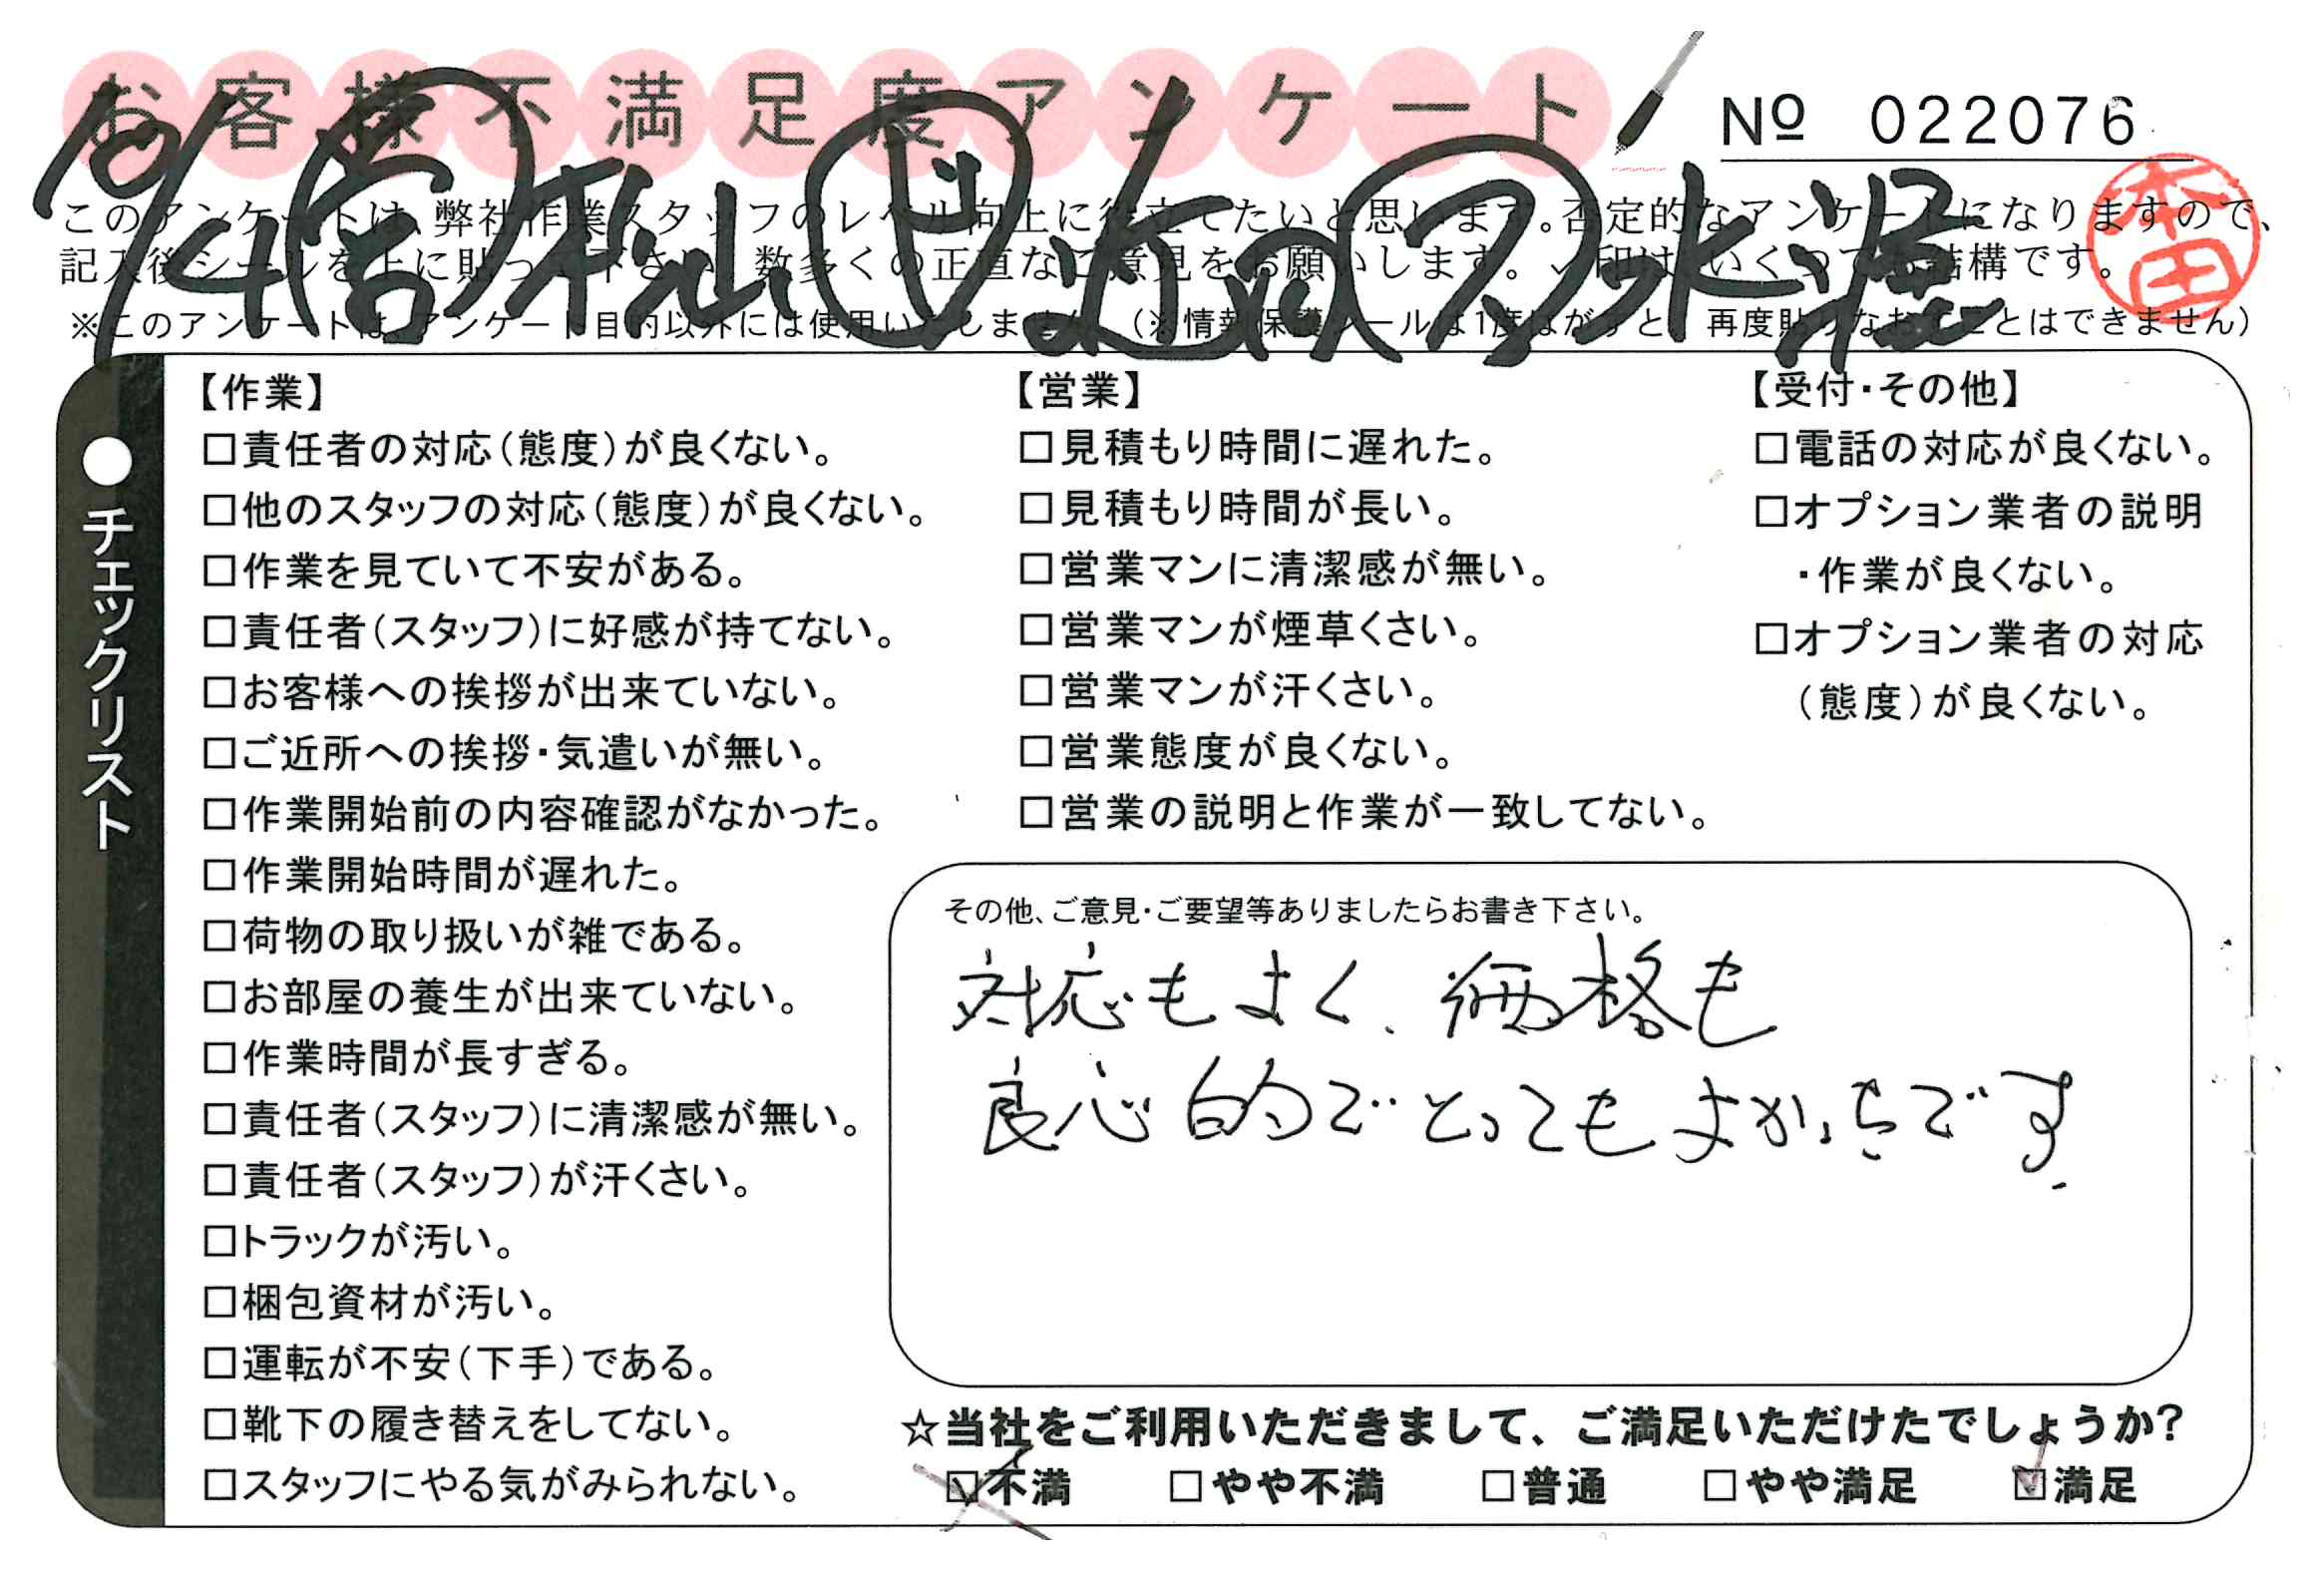 お客様不満足度アンケート
№ 022076
10/4 営 松山 リ 近知 フ 水溜
本田
このアンケートは、弊社作業スタッフのレベル向上に役立てたいと思います。否定的なアンケートになりますので、
記入後シールを上に貼って下さい。数多くの正直なご意見をお願いします。✓印は、いくつでも結構です。
※このアンケートは、アンケート目的以外には使用いたしません。(※情報保護シールは1度はがすと、再度貼りなおすことはできません)
●チェックリスト
【作業】
□責任者の対応(態度)が良くない。
□他のスタッフの対応(態度)が良くない。
□作業を見ていて不安がある。
□責任者(スタッフ)に好感が持てない。
□お客様への挨拶が出来ていない。
□ご近所への挨拶・気遣いが無い。
□作業開始前の内容確認がなかった。
□作業開始時間が遅れた。
□荷物の取り扱いが雑である。
□お部屋の養生が出来ていない。
□作業時間が長すぎる。
□責任者(スタッフ)に清潔感が無い。
□責任者(スタッフ)が汗くさい。
□トラックが汚い。
□梱包資材が汚い。
□運転が不安(下手)である。
□靴下の履き替えをしてない。
□スタッフにやる気がみられない。
【営業】
□見積もり時間に遅れた。
□見積もり時間が長い。
□営業マンに清潔感が無い。
□営業マンが煙草くさい。
□営業マンが汗くさい。
□営業態度が良くない。
□営業の説明と作業が一致してない。
【受付・その他】
□電話の対応が良くない。
□オプション業者の説明
・作業が良くない。
□オプション業者の対応
(態度)が良くない。
その他、ご意見・ご要望等ありましたらお書き下さい。
対応もよく、価格も
良心的でとってもよかったです。
☆当社をご利用いただきまして、ご満足いただけたでしょうか?
☑不満 □やや不満 □普通 □やや満足 ☑満足